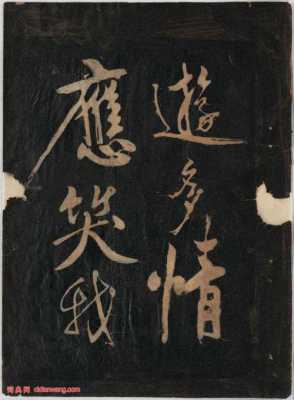 遊多情
應笑我
博真网 cidianwang.com